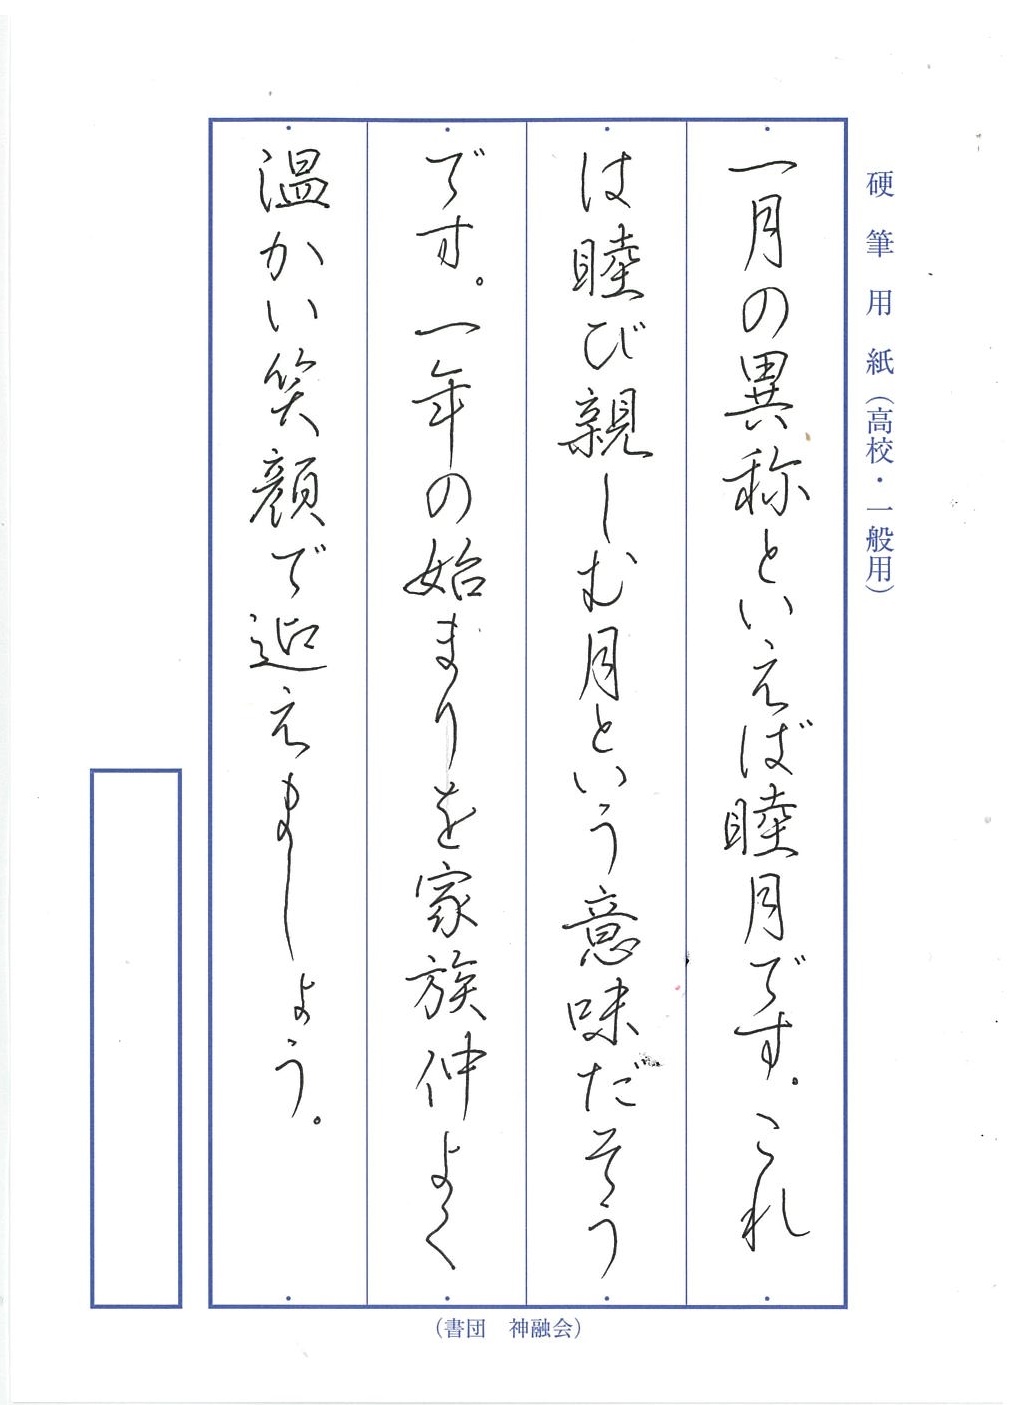 硬筆用紙（高校・一般用）
一月の異称といえば睦月です。これ
は睦び親しむ月という意味だそう
です。一年の始まりを家族仲よく
温かい笑顔で迎えましょう。
（書団　神融会）